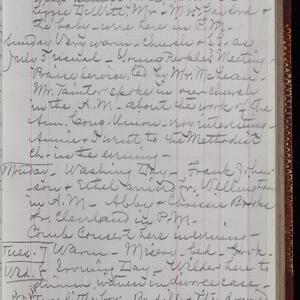 Lizzie DeWitt, Mr + Mrs Gaylord +
the baby were here in P.M.
Sunday Very warm - Church + S.S. as
July 5 usual - Young People's Meeting -
Praise Service, led by Mr. McLean -
Mr. Taintor spoke in our church
in the A.M. - about the work of the
Am. Cong. Union - very interesting -
Annie + I went to the Methodist
Ch. in the evening -
Monday - Washing Day - Frank John-
son + Ethel arrived fr. Wellington
in A.M. - Abby + Chrissie Brooks
for Cleveland in P.M.
Comb Concert here in evening -
Tues. 7 Warm -
Wed. 8 Ironing Day - Wilder here to
dinner, witness in divorce case